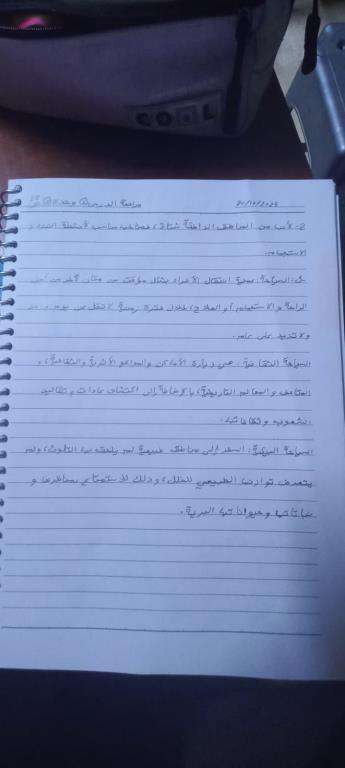 COOL
مراجعة الدرس ① وحدة ②
2- لأنه من المناطق الدافئة شتاءً، فمناخه مناسب لأنشطة التنزه و
الاستجمام.
السياحة: عملية انتقال الأفراد بشكل مؤقت من مكان لآخر من أجل
الراحة والاستجمام أو العلاج، خلال فترة زمنية لا تقل عن يوم واحد
ولا تزيد على عام.
السياحة الثقافية: هي زيارة الأماكن والمواقع الأثرية والثقافية، و
المتاحف والمعالم التاريخية، بالإضافة إلى اكتشاف عادات وتقاليد
الشعوب وثقافاتها.
السياحة البيئية: السفر إلى مناطق طبيعية لم يلحق بها التلوث، ولم
يتعرض توازنها الطبيعي للخلل، وذلك للاستمتاع بمناظرها و
نباتاتها وحيواناتها البرية.